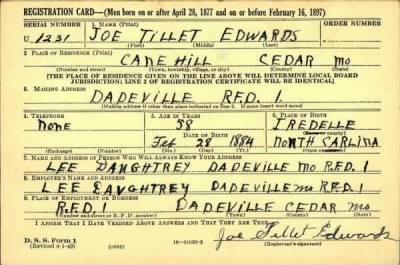 REGISTRATION CARD—(Men born on or after April 28, 1877 and on or before February 16, 1897)
SERIAL NUMBER 1. NAME (Print) ORDER NUMBER
U 1231 JOE TILLET EDWARDS
(First) (Middle) (Last)
2. PLACE OF RESIDENCE (Print)
CANE HILL CEDAR MO
(Number and street) (Town, township, village, or city) (County) (State)
[THE PLACE OF RESIDENCE GIVEN ON THE LINE ABOVE WILL DETERMINE LOCAL BOARD
JURISDICTION; LINE 2 OF REGISTRATION CERTIFICATE WILL BE IDENTICAL]
3. MAILING ADDRESS
DADEVILLE RFD. 1
[Mailing address if other than place indicated on line 2. If same insert word same]
4. TELEPHONE 5. AGE IN YEARS 6. PLACE OF BIRTH
NONE 58 IREDELLE
DATE OF BIRTH (Town or county)
Feb 28 1884 NORTH CARLINA
(Exchange) (Number) (Mo.) (Day) (Yr.) (State or country)
7. NAME AND ADDRESS OF PERSON WHO WILL ALWAYS KNOW YOUR ADDRESS
LEE DAUGHTREY DADEVILLE MO R.F.D. 1
8. EMPLOYER'S NAME AND ADDRESS
LEE DAUGHTREY DADEVILLE MO R.F.D. 1
9. PLACE OF EMPLOYMENT OR BUSINESS
R.F.D. 1 DADEVILLE CEDAR MO
(Number and street or R. F. D. number) (Town) (County) (State)
I AFFIRM THAT I HAVE VERIFIED ABOVE ANSWERS AND THAT THEY ARE TRUE.
D. S. S. Form 1 Joe Tillet Edwards
(Revised 4-1-42) (over) 16—21630-2 (Registrant's signature)